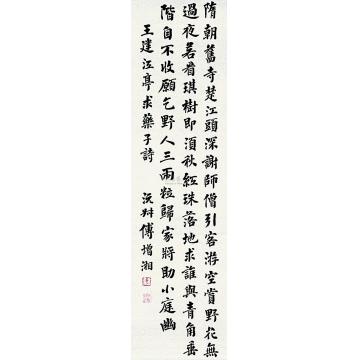 隋朝舊寺楚江頭深謝師僧引客游空賞野花無
過夜若看琪樹即須秋紅珠落地求誰與青角垂
階自不收願乞野人三兩粒歸家將助小庭幽
王建江亭求藥子詩 沅叔傅增湘